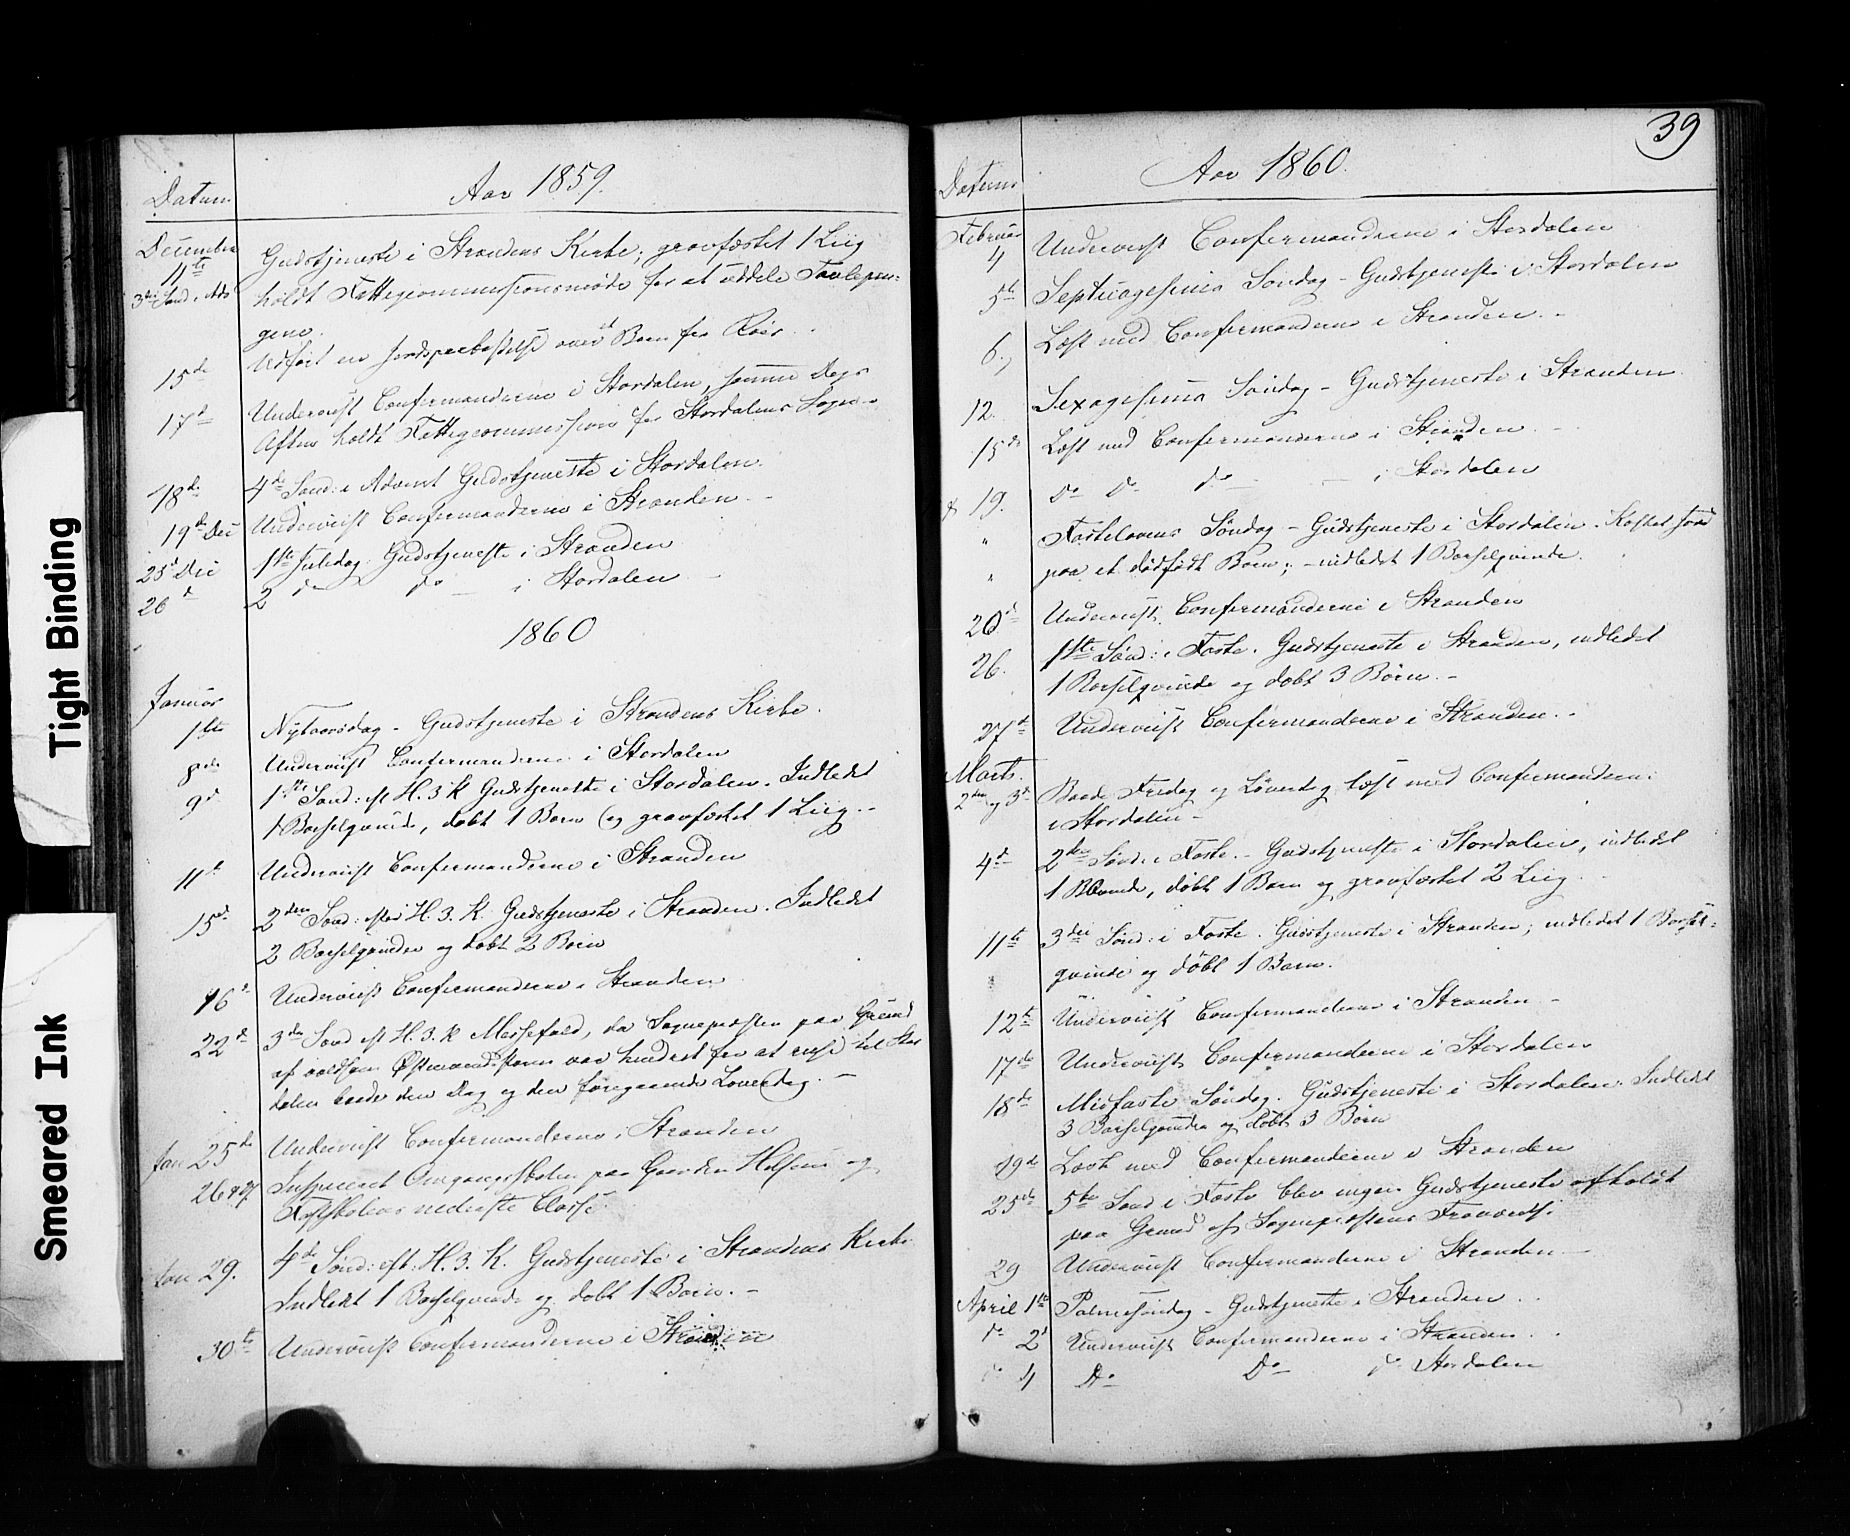 Tight Binding
Smeared Ink
Datum
Aar 1859.
December
11te
3die Sønd. i Adv
Gudstjeneste i Strandens Kirke; gravfæstet 1 Liig
holdt Fattigcommissionsmøde for at uddele
gene.
15de
Udført en Jordspaakastelse over Barn fra
17d
Underviist Confirmanderne i Stordalen, samme Dags
Aften holdt Fattigcommission for Stordalens Sogn
18de
4de Sønd: i Advent Gudstjeneste i Stordalen.
19de Dec
Underviist Confirmanderne i Stranden. -
25d Dec
1ste Juledag. Gudstjeneste i Stranden
26d
2 do do i Stordalen -
1860
Januar
1ste
Nytaarsdag - Gudstjeneste i Strandens Kirke.
8de
Underviist Confirmanderne i Stordalen
9d
1ste Sønd: eft H. 3 K Gudstjeneste i Stordalen. Indledet
1 Barselqvinde, døbt 1 Barn og gravfæstet 1 Liig. -
11te
Underviist Confirmanderne i Stranden
15de
2den Sønd: efter H. 3. K. Gudstjeneste i Stranden. Indledet
2 Barselqvinder og døbt 2 Børn
16d
Underviist Confirmanderne i Stranden
22d
3die Sønd eft H. 3. K Messefald, da Sognepræsten paa Grund
af voldsom Østenvindsstorm var hindret fra at reise til Stor
dalen baade den Dag og den foregaaende Løverdag. -
Jan 25de
Underviist Confirmanderne i Stranden
26 & 27
Inspiceret Omgangsskolen paa Gaarden og
Fastskolens nederste Classe.
Jan 29.
4de Sønd: eft: H. 3. K. Gudstjeneste i Strandens Kirke
Indledt 1 Barselqvinde og døbt 1 Barn. -
30te
Underviist Confirmanderne i Stranden
39
Datum
Aar 1860.
Februar
4
Underviist Confirmanderne i Stordalen
5te
Septuagesima Søndag - Gudstjeneste i Stordalen
6.
Læst med Confirmanderne i Stranden. -
12.
Sexagesima Søndag - Gudstjeneste i Stranden.
15de
Læst med Confirmanderne i Stranden. -
19.
do do do - i Stordalen
"
Fastelavens Søndag - Gudstjeneste i Stordalen. Kastet Jord
"
paa et dødfødt Barn; - indledet 1 Barselqvinde.
20d
Underviist Confirmanderne i Stranden
26.
1ste Sønd: i Faste. Gudstjeneste i Stranden, indledet
1 Barselqvinde og døbt 3 Børn. -
27de
Underviist Confirmanderne i Stranden. -
Marts.
2den og 3d
Baade Fredag og Løverdag læst med Confirmanderne
i Stordalen -
4de
2den Sønd: i Faste. - Gudstjeneste i Stordalen, indledet
1 døbt 1 Barn og gravfæstet 2 Liig
11te
3die Sønd: i Faste. Gudstjeneste i Stranden; indledet 1 Barsel-
qvinde og døbt 1 Barn.
12te
Underviist Confirmanderne i Stranden -
17de
Underviist Confirmanderne i Stordalen
18de
Midfaste Søndag. Gudstjeneste i Stordalen. Indledt
3 Barselqvinder og døbt 3 Børn
19de
Læst med Confirmanderne i Stranden
25de
5te Sønd i Faste blev ingen Gudstjeneste afholdt
paa Grund af Sognepræstens Fraværelse.
29
Underviist Confirmanderne i Stranden. -
April 1ste
Palmesøndag - Gudstjeneste i Stranden.
do 2d
Underviist Confirmanderne i Stranden.
do 4
do do do Stordalen